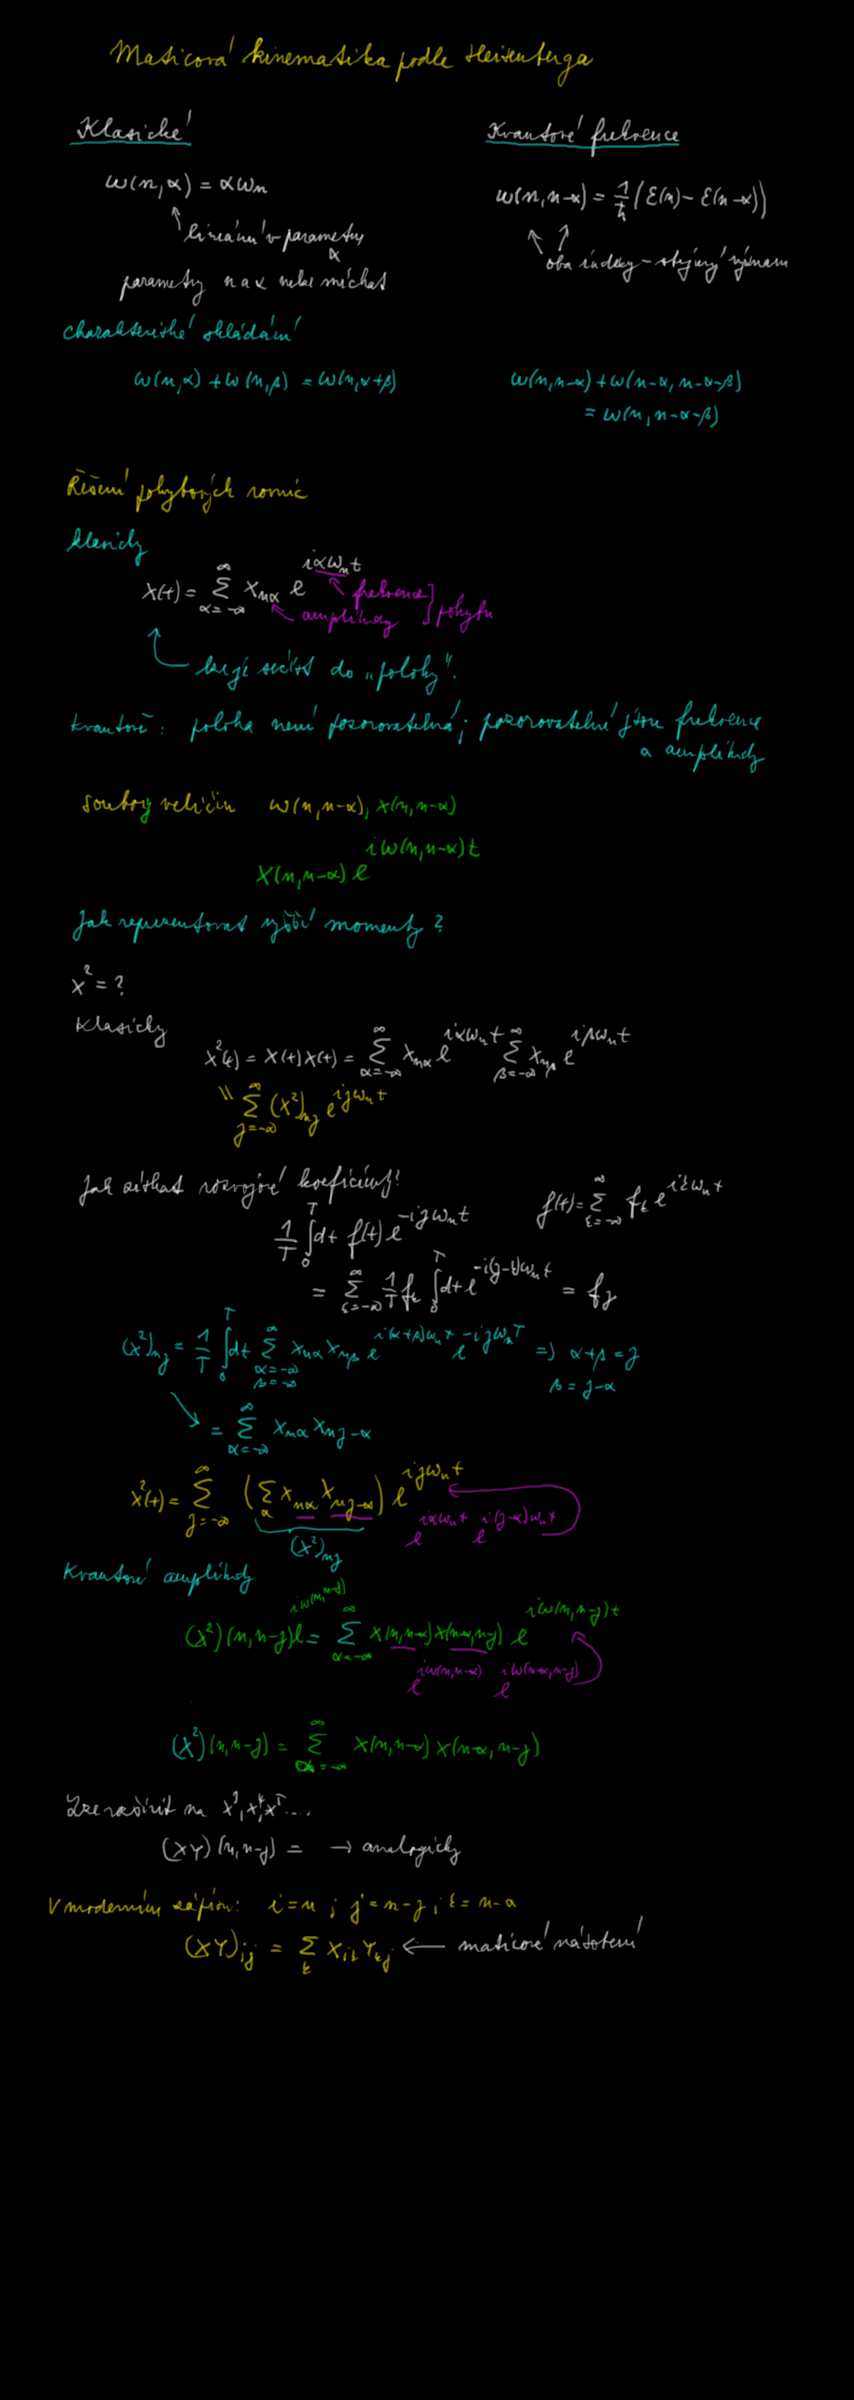 Maticová kinematika podle Heisenberga
Klasické
Kvantové frekvence
ω(n,α) = αωₙ
ω(n,n-α) = 1/ħ (ε(n) - ε(n-α))
lineární v parametru α
oba indexy - stejný význam
parametry n a α nelze míchat
charakteristické skládání
ω(n,α) + ω(n,β) = ω(n,α+β)
ω(n,n-α) + ω(n-α, n-α-β)
= ω(n, n-α-β)
Řešení pohybových rovnic
klasicky
x(t) = ∑_{α=-∞}^{∞} x_{nα} e^{iαωₙt}
frekvence
amplitudy
pohybu
lze sčítat do „polohy".
kvantově: poloha není pozorovatelná; pozorovatelné jsou frekvence
a amplitudy
Soubory veličin ω(n,n-α), x(n,n-α)
x(n,n-α) e^{iω(n,n-α)t}
Jak reprezentovat vyšší momenty?
x² = ?
Klasicky
x²(t) = x(t)x(t) = ∑_{α=-∞}^{∞} x_{nα} e^{iαωₙt} ∑_{β=-∞}^{∞} x_{nβ} e^{iβωₙt}
= ∑_{γ=-∞}^{∞} (x²)_{nγ} e^{iγωₙt}
Jak získat rozvojové koeficienty?
f(t) = ∑_{ξ=-∞}^{∞} f_ξ e^{iξωₙt}
1/T ∫₀ᵀ dt f(t) e^{-iγωₙt}
= ∑_{ξ=-∞}^{∞} 1/T f_ξ ∫₀ᵀ dt e^{-i(γ-ξ)ωₙt} = f_γ
(x²)_{nγ} = 1/T ∫₀ᵀ dt ∑_{α=-∞, β=-∞}^{∞} x_{nα} x_{nβ} e^{i(α+β)ωₙt} e^{-iγωₙT} ⇒ α+β = γ
β = γ-α
= ∑_{α=-∞}^{∞} x_{nα} x_{nγ-α}
x²(t) = ∑_{γ=-∞}^{∞} (∑_α x_{nα} x_{nγ-α}) e^{iγωₙt}
e^{iαωₙt} e^{i(γ-α)ωₙt}
(x²)_{nγ}
Kvantové amplitudy
(x²)(n,n-γ) e^{iω(n,n-γ)} = ∑_{α=-∞}^{∞} x(n,n-α) x(n-α,n-γ) e^{iω(n,n-γ)t}
e^{iω(n,n-α)} e^{iω(n-α,n-γ)}
(x²)(n,n-γ) = ∑_{α=-∞}^{∞} x(n,n-α) x(n-α,n-γ)
Lze rozšířit na x³, x⁴, x⁵....
(xy)(n,n-γ) = → analogicky
V moderním zápisu: i = n ; j = n-γ ; ξ = n-α
(XY)_{ij} = ∑_ξ X_{iξ} Y_{ξj} ← maticové násobení